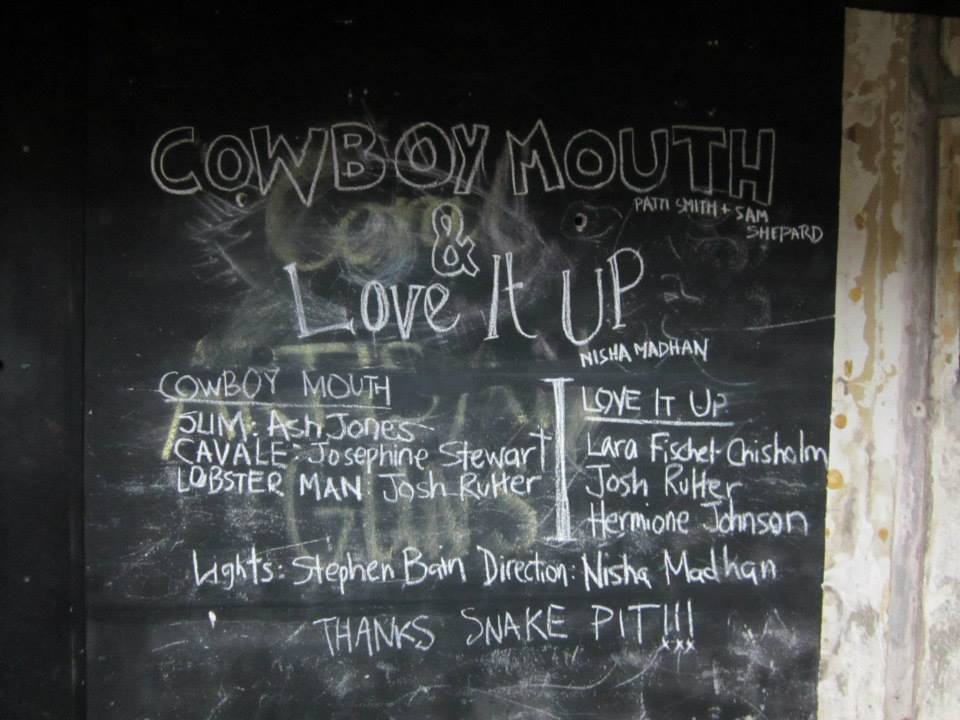 COWBOY MOUTH
PATTI SMITH + SAM
SHEPARD
&
Love It UP
NISHA MADHAN
COWBOY MOUTH
SLIM: Ash Jones
CAVALE: Josephine Stewart
LOBSTER MAN: Josh Rutter
LOVE IT UP
Lara Fischel-Chisholm
Josh Rutter
Hermione Johnson
Lights: Stephen Bain Direction: Nisha Madhan
THANKS SNAKE PIT!!!
xxx